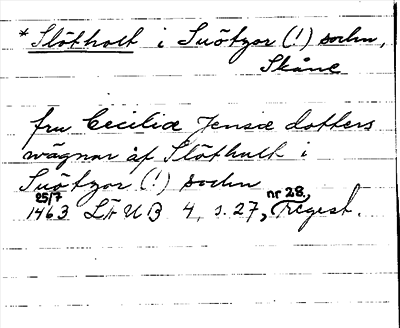 * Slötholt i Suötzor (!) sochn,
Skåne
fru Ceciliæ Jensæ dotters
wägnar af Slöthult i
Suötzor (!) sochn
25/7 nr 28.,
1463 LÄUB 4, s. 27, Regest.